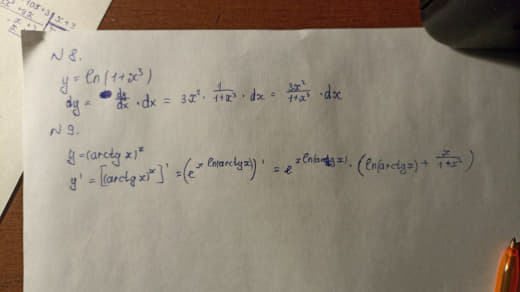 N 8.
y = ln(1+x³)
dy = dy/dx · dx = 3x² · 1/(1+x³) · dx = 3x²/(1+x³) · dx
N 9.
y = (arctg x)ˣ
y' = [(arctg x)ˣ]' = (e^(x ln(arctg x)))' = e^(x ln(arctg x)) · (ln(arctg x) + x/(1+x²))